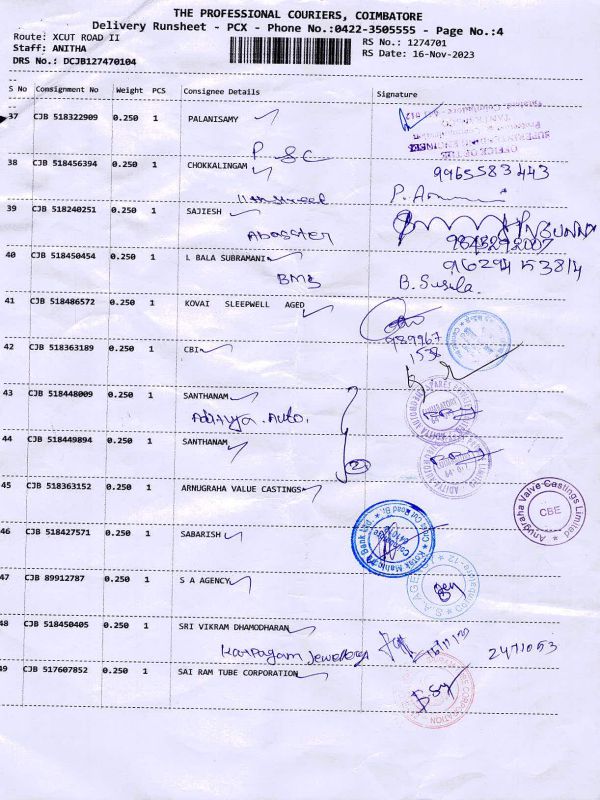 THE PROFESSIONAL COURIERS, COIMBATORE
Delivery Runsheet - PCX - Phone No.:0422-3505555 - Page No.:4
Route: XCUT ROAD II
RS No.: 1274701
Staff: ANITHA
RS Date: 16-Nov-2023
DRS No.: DCJB127470104
S No Consignment No Weight PCS Consignee Details Signature
37 CJB 518322909 0.250 1 PALANISAMY
OFFICE OF THE
P S C
38 CJB 518456394 0.250 1 CHOKKALINGAM
9965583443
39 CJB 518240251 0.250 1 SAJIESH
40 CJB 518450454 0.250 1 L BALA SUBRAMANI
B. Susila.
41 CJB 518486572 0.250 1 KOVAI SLEEPWELL AGED
989967
1538
42 CJB 518363189 0.250 1 CBI
43 CJB 518448009 0.250 1 SANTHANAM
Aditya. Auto.
44 CJB 518449894 0.250 1 SANTHANAM
2
45 CJB 518363152 0.250 1 ARNUGRAHA VALUE CASTINGS
Anugraha Valve Castings Limited
CBE
46 CJB 518427571 0.250 1 SABARISH
47 CJB 89912787 0.250 1 S A AGENCY
S.A AGENCY
Coimbatore-12
48 CJB 518450405 0.250 1 SRI VIKRAM DHAMODHARAN
Karpagam Jewellery
2471053
49 CJB 517607852 0.250 1 SAI RAM TUBE CORPORATION
CORPORATION